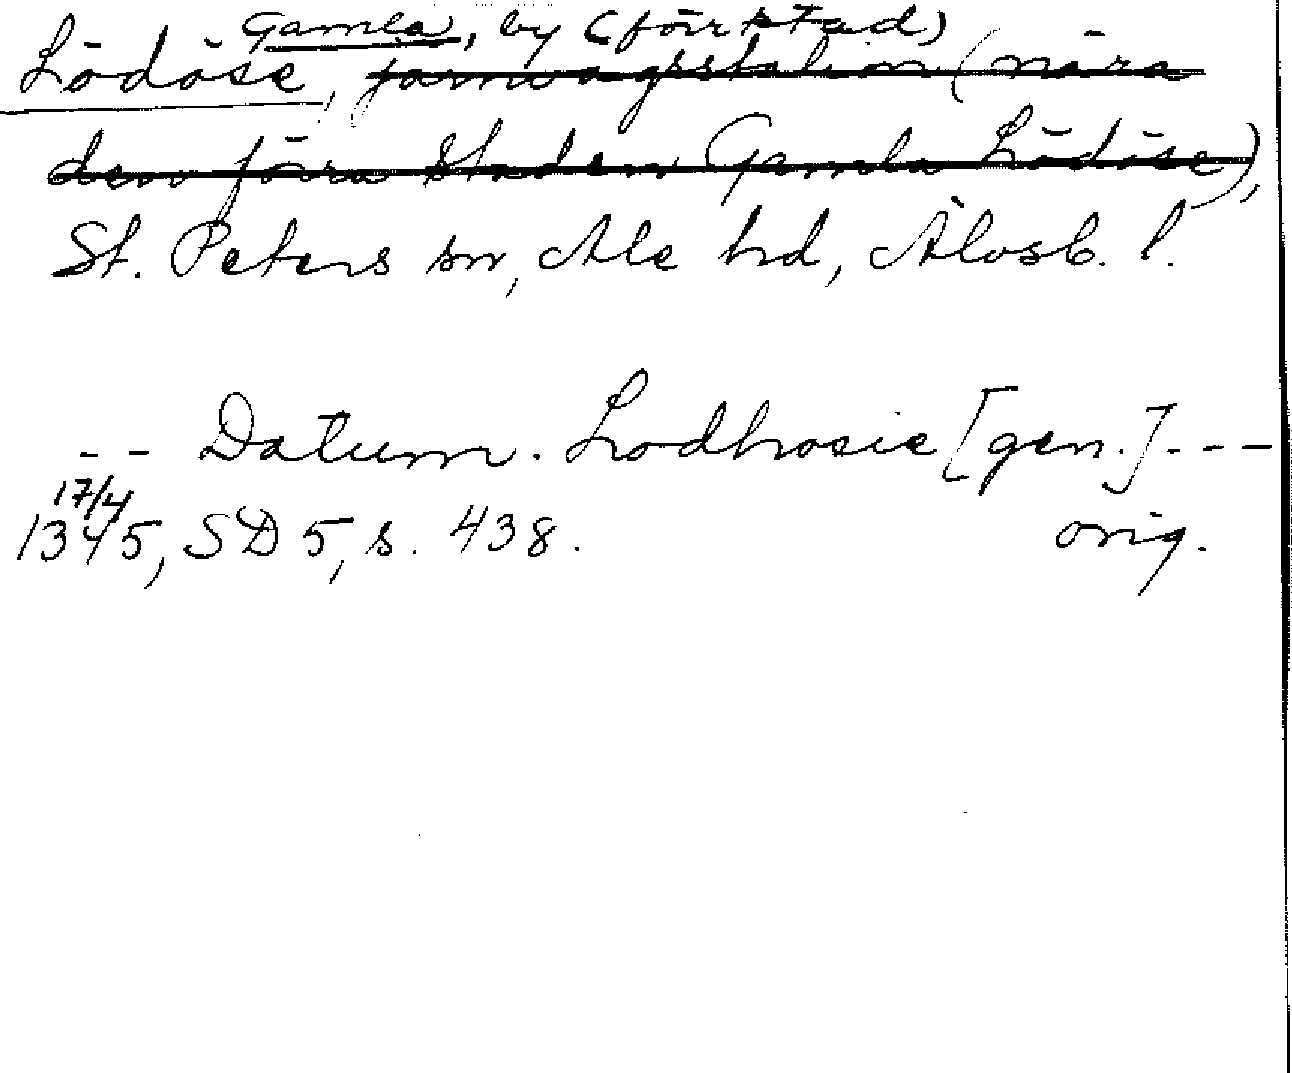 Gamla, by (förr stad)
Lödöse, järnvägsstation (nära
den förra staden Gamla Lödöse),
St. Peters sn, Ale hd, Älvsb. l.
-- Datum. Lodhosie [gen.] ---
17/4
1345, SD 5, s. 438. orig.